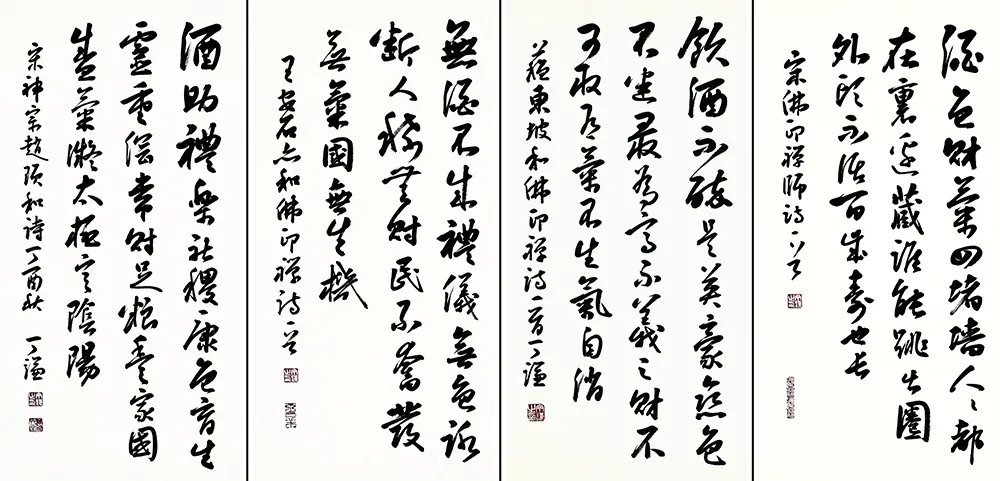 酒色財氣四堵墙人人都
在裏邊藏誰能跳出圈
外頭不活百歲壽也长
宋佛印禅師詩
飲酒不醉是英豪恋色
不迷最為高不義之財不
可取有氣不生氣自消
蘇東坡和佛印禅詩一首丁谦
無酒不成禮儀無色路
断人稀無財民不奮發
無氣國無生機
王安石亦和佛印禅詩
酒助禮樂社稷康色育生
靈重綱常財足粮豐家國
盛氣凝太極定陰陽
宋神宗趙顼和詩丁酉秋 丁谦